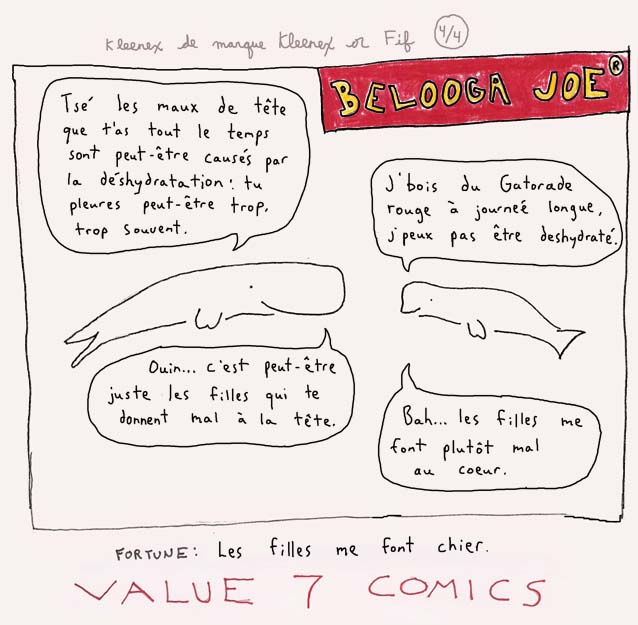 Kleenex de marque Kleenex or Fif 4/4
BELOOGA JOE®
Tsé les maux de tête
que t'as tout le temps
sont peut-être causés par
la déshydratation: tu
pleures peut-être trop,
trop souvent.
J'bois du Gatorade
rouge à journeé longue,
j'peux pas être deshydraté.
Ouin... c'est peut-être
juste les filles qui te
donnent mal à la tête.
Bah... les filles me
font plutôt mal
au coeur.
FORTUNE: Les filles me font chier.
VALUE 7 COMICS